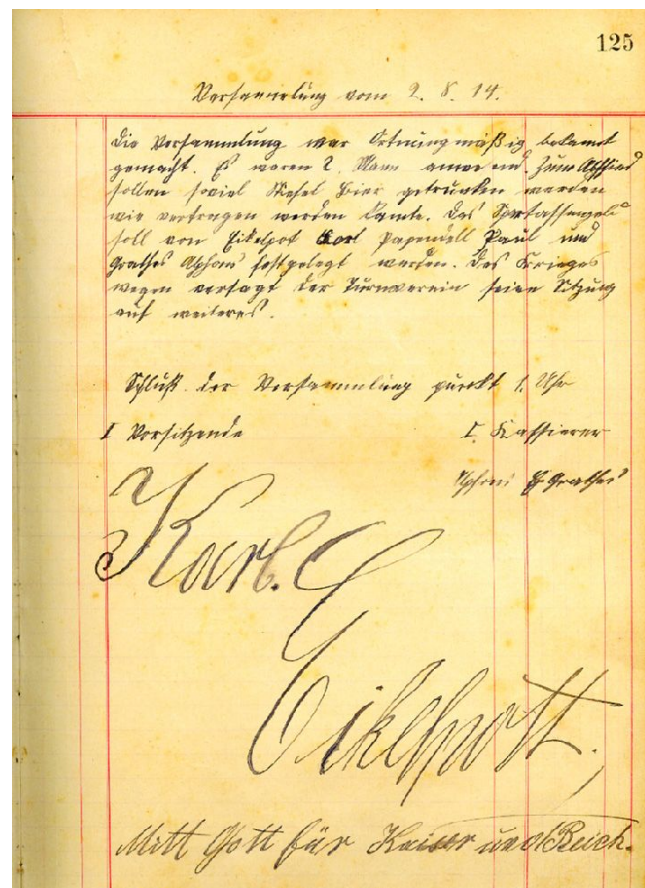 125
Versammlung vom 2. 8. 14.
Die Versammlung war Ortnungmäßig bekannt
gemacht. Es waren 2. Mann anwesend. Zum Abschied
sollen soviel Stiefel Bier getrunken werden
wie vertragen werden kannte. Das
soll von Eikelpot Karl Papendell Paul und
Grathes Alphons festgelegt werden. Des Krieges
wegen versagt der Turnverein seine Sitzung
auf weiteres.
Schluß der Versammling punkt 1. Uhr
I Vorsitzende
I. Kassierer
Alphons Grathes
Karl.
Eikelpott,
Mitt Gott für Kaiser und Reich.